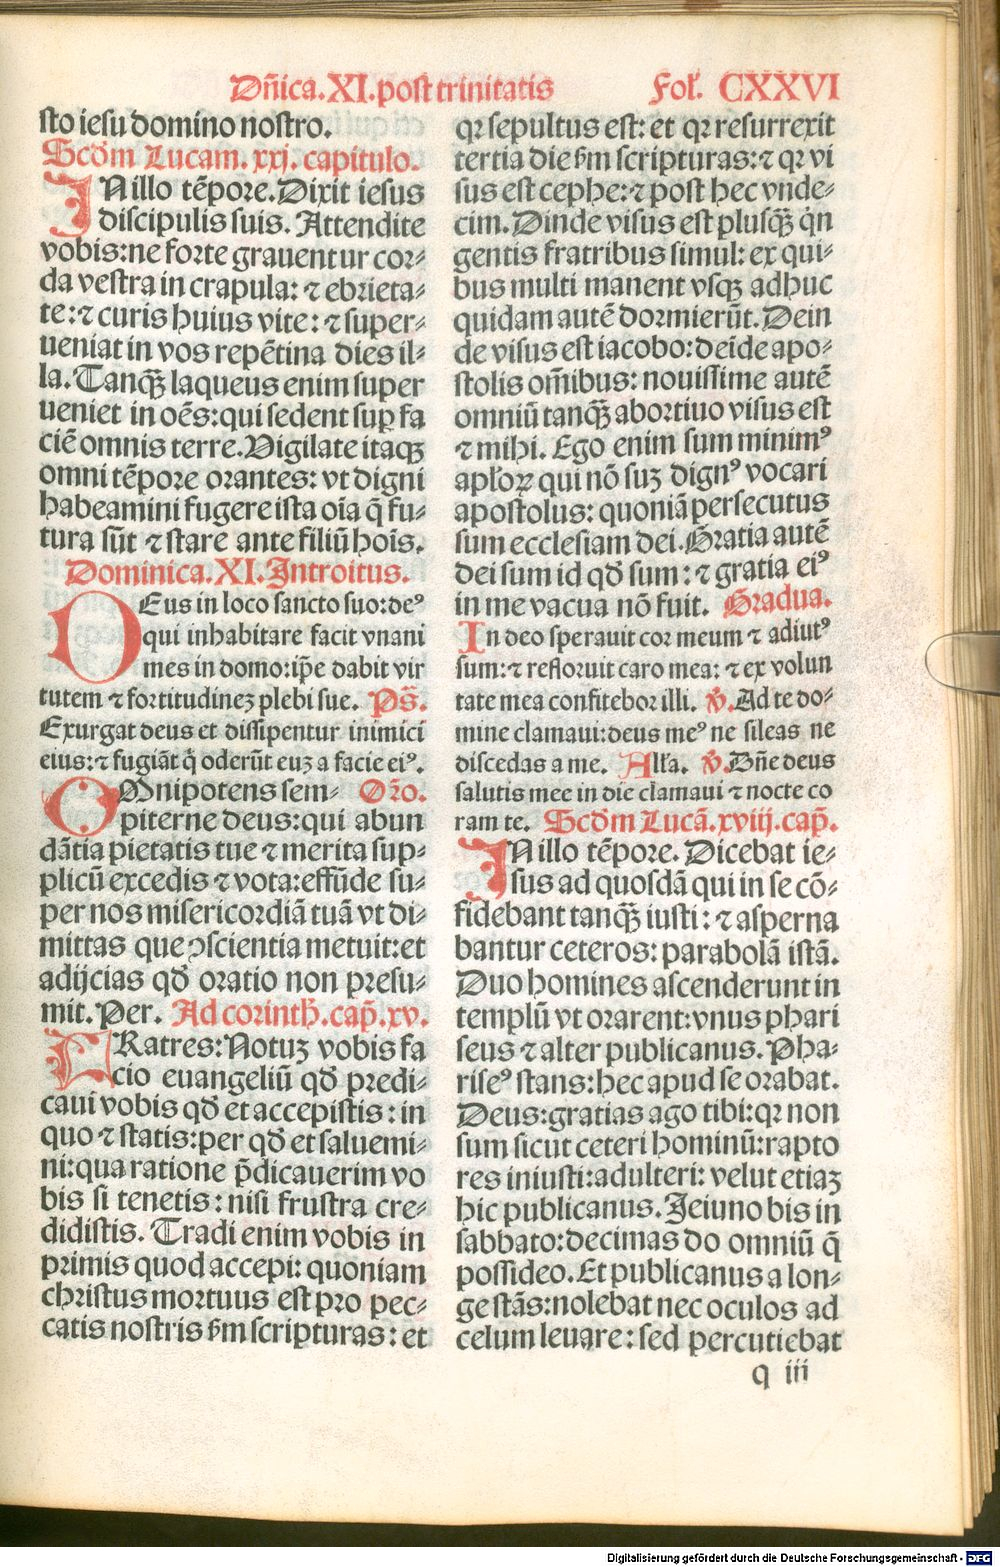 Dñica.XI.post trinitatis Fol. CXXVI
sto iesu domino nostro.
Scðm Lucam. xxj. capitulo.
IN illo tẽpore. Dixit iesus
discipulis suis. Attendite
vobis: ne forte grauentur cor⸗
da vestra in crapula: ⁊ ebrieta⸗
te: ⁊ curis huius vite: ⁊ super⸗
ueniat in vos repẽtina dies il⸗
la. Tanqꝫ laqueus enim super
ueniet in oẽs: qui sedent suꝑ fa
ciẽ omnis terre. Vigilate itaqꝫ
omni tẽpore orantes: vt digni
habeamini fugere ista oĩa q̃ fu⸗
tura sũt ⁊ stare ante filiũ hoĩs.
Dominica. XI. Introitus.
DEus in loco sancto suo: deꝰ
qui inhabitare facit vnani
mes in domo: ip̃e dabit vir
tutem ⁊ fortitudineꝫ plebi sue. Ps̃.
Exurgat deus et dissipentur inimici
eius: ⁊ fugiãt q̇ oderũt euꝫ a facie eiꝰ.
OMnipotens sem⸗ Oro.
piterne deus: qui abun
dãtia pietatis tue ⁊ merita sup⸗
plicũ excedis ⁊ vota: effũde su⸗
per nos misericordiã tuã vt di⸗
mittas que ↄscientia metuit: et
adijcias qð oratio non presu⸗
mit. Per. Ad corinth. cap̃. xv.
FRatres: Notuꝫ vobis fa
cio euangeliũ qð predi⸗
caui vobis qð et accepistis: in
quo ⁊ statis: per qð et saluemi⸗
ni: qua ratione p̃dicauerim vo
bis si tenetis: nisi frustra cre⸗
didistis. Tradi enim vobis in
primis quod accepi: quoniam
christus mortuus est pro pec⸗
catis nostris ẜm scripturas: et
qꝛ sepultus est: et qꝛ resurrexit
tertia die ẜm scripturas: ⁊ qꝛ vi
sus est cephe: ⁊ post hec vnde⸗
cim. Dinde visus est plusqꝫ q̇n
gentis fratribus simul: ex qui⸗
bus multi manent vsqꝫ adhuc
quidam autẽ dormierũt. Dein
de visus est iacobo: deĩde apo⸗
stolis om̃ibus: nouissime autẽ
omniũ tanqꝫ abortiuo visus est
⁊ mihi. Ego enim sum minimꝰ
apl'oꝝ qui nõ suꝫ dignꝰ vocari
apostolus: quoniã persecutus
sum ecclesiam dei. Gratia autẽ
dei sum id qð sum: ⁊ gratia eiꝰ
in me vacua nõ fuit. Gradua.
In deo sperauit cor meum ⁊ adiutꝰ
sum: ⁊ refloruit caro mea: ⁊ ex volun
tate mea confitebor illi. ℣. Ad te do⸗
mine clamaui: deus meꝰ ne sileas ne
discedas a me. All'a. ℣. Dñe deus
salutis mee in die clamaui ⁊ nocte co
ram te. Scðm Lucã. xviij. cap̃.
IN illo tẽpore. Dicebat ie⸗
sus ad quosdã qui in se cõ⸗
fidebant tanqꝫ iusti: ⁊ asperna
bantur ceteros: parabolã istã.
Duo homines ascenderunt in
templũ vt orarent: vnus phari
seus ⁊ alter publicanus. Pha⸗
riseꝰ stans: hec apud se orabat.
Deus: gratias ago tibi: qꝛ non
sum sicut ceteri hominũ: rapto
res iniusti: adulteri: velut etiaꝫ
hic publicanus. Jeiuno bis in
sabbato: decimas do omniũ q̃
possideo. Et publicanus a lon⸗
ge stãs: nolebat nec oculos ad
celum leuare: sed percutiebat
q iii
Digitalisierung gefördert durch die Deutsche Forschungsgemeinschaft - DFG